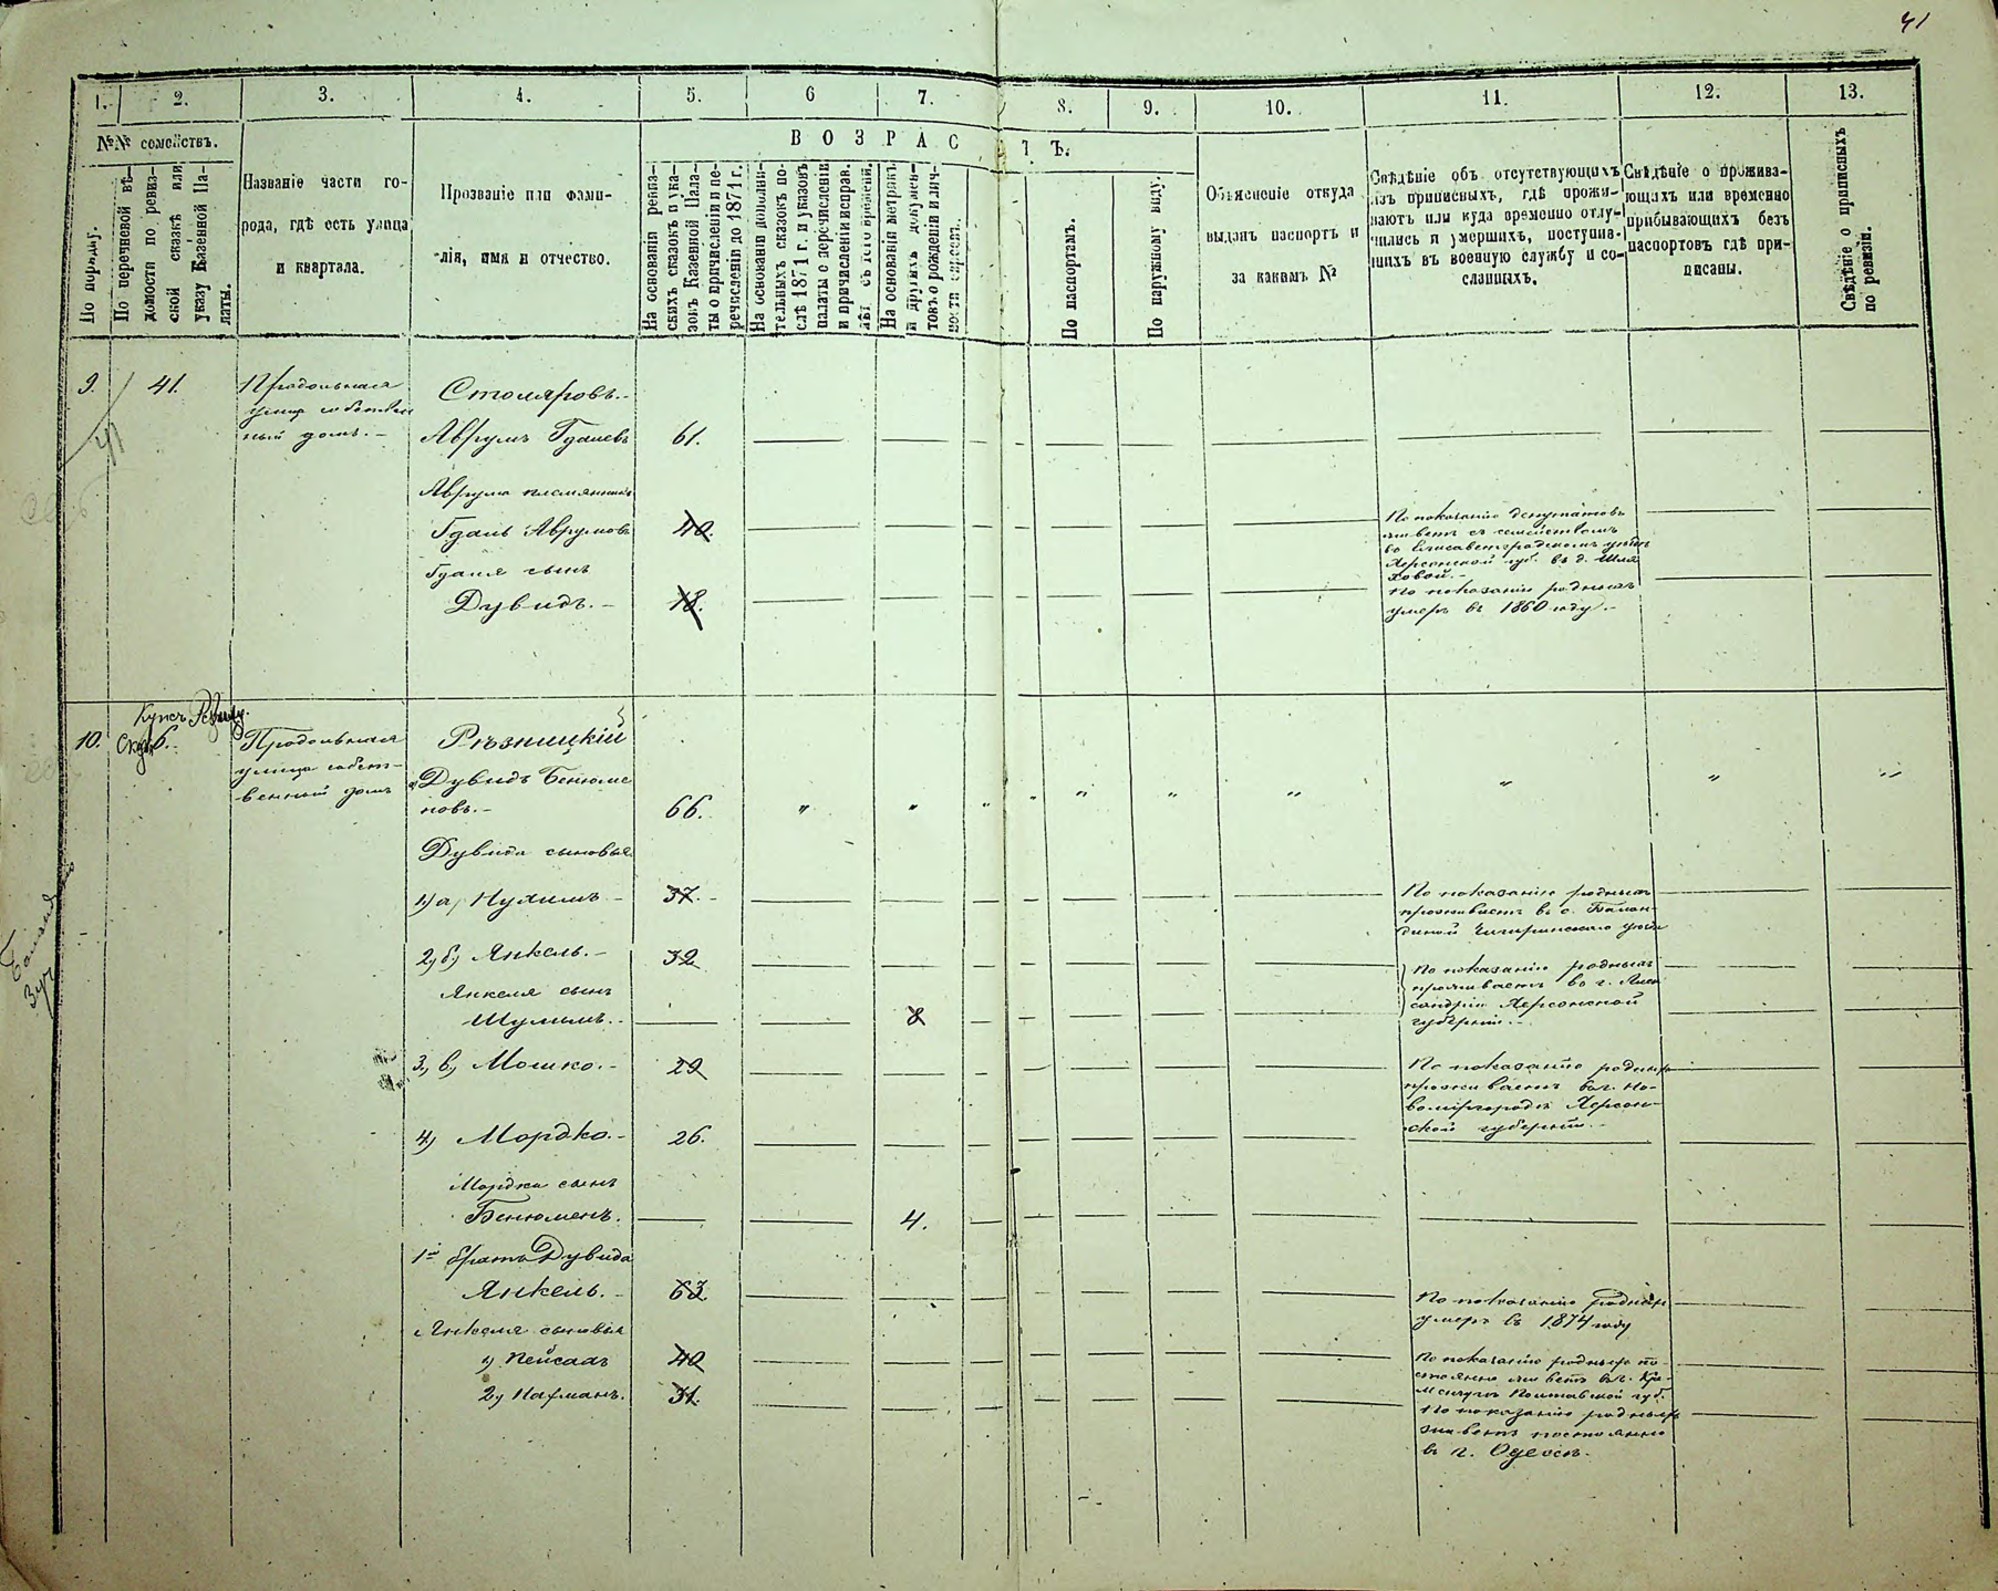 41
1.
2.
3.
4.
5.
6
7.
8.
9.
10.
11.
12.
13.
№№ семействъ.
По порядку.
По перечневой вѣ-
домости по ревиз-
ской сказкѣ или
указу Казенной Па-
латы.
Названіе части го-
рода, гдѣ есть улица
и квартала.
Прозваніе или фами-
лія, имя и отчество.
ВОЗРАСТЪ.
На основаніи ревиз-
скихъ сказокъ и ука-
зовъ Казенной Пала-
ты о причисленіи и пе-
речисленіи до 1871 г.
На основаніи дополни-
тельныхъ сказокъ по-
слѣ 1871 г. и указовъ
палаты о перечисленіи
и причисленіи исправ.
лѣт. съ того времени.
На основаніи метрикъ
и другихъ докумен-
товъ о рожденіи и лич-
ности евреевъ.
По паспортамъ.
По наружному виду.
Объясненіе откуда
выданъ паспортъ и
за какимъ №
Свѣдѣніе объ отсутствующихъ
изъ приписныхъ, гдѣ прожи-
ваютъ или куда временно отлу-
чились и умершихъ, поступив-
шихъ въ военную службу и со-
сланныхъ.
Свѣдѣніе о прожива-
ющихъ или временно
прибывающихъ безъ
паспортовъ гдѣ при-
писаны.
Свѣдѣніе о приписныхъ
по ревизіи.
9.
41.
41
Продольная
улица собствен
ный домъ.-
Столяровъ.-
Аврумъ Гдалевъ
61.
Аврума племянникъ
Гдаль Аврумовъ
40.
По показанію депутатовъ
живетъ съ семействомъ
во Елисаветградскомъ уѣздѣ
Херсонской губ. въ д. Шля
ховой.-
Гдаля сынъ
Дувидъ.-
18.
По показанію родныхъ
умеръ въ 1860 году.-
10.
Купеч.
6.
Продольная
улица собст-
венный домъ
Рѣзницкій
Дувидъ Бенюме
новъ.-
66.
Дувида сыновья
1) а, Нухимъ.-
37.-
По показанію родныхъ
проживаетъ въ с. Балан-
диной Чигиринскаго уѣзда
2, б, Янкель.-
32
По показанію родныхъ
проживаетъ во г. Алек
сандріи Херсонской
губерніи.-
Янкеля сынъ
Шулимъ.-
8
3, в, Мошко.-
29
По показанію родныхъ
проживаетъ въ г. Но-
вомиргородѣ Херсон-
ской губерніи.-
4, Мордко.-
26.
Мордка сынъ
Бенюменъ.
4.
1й братъ Дувида
Янкель.-
63.
По показанію родныхъ
умеръ въ 1874 году
Янкеля сыновья
1, Пейсахъ
40
По показанію родныхъ по-
стоянно живетъ въ г. Кре-
менчугѣ Полтавской губ.
2, Нахманъ.
31.
По показанію родныхъ
живетъ постоянно
въ г. Одессѣ.